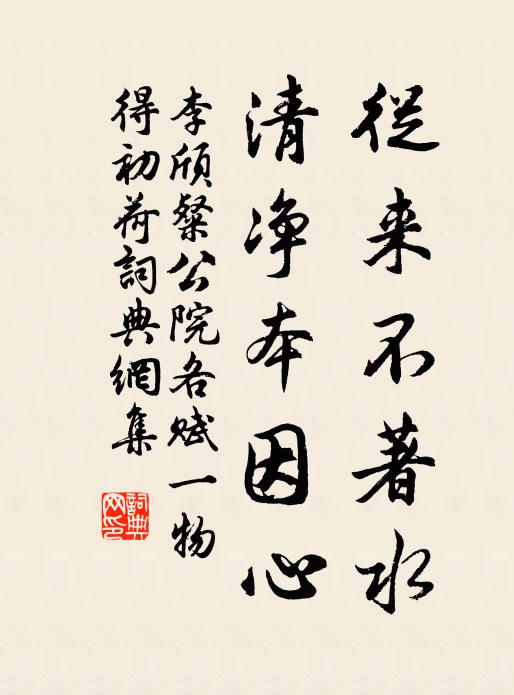 從来不著水
清净本因心
李頎粲公院各賦一物
得初荷詞典網集
詞典
网印